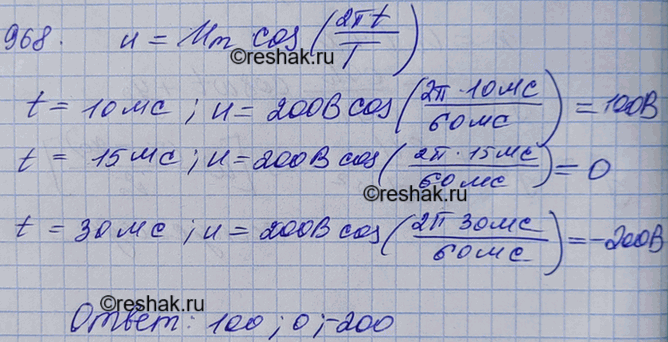 968. u = Um cos(2πt/T)
©reshak.ru
t = 10мс ; u = 200В cos(2π·10мс/60мс) = 100В
t = 15мс ; u = 200В cos(2π·15мс/60мс) = 0
©reshak.ru
t = 30мс ; u = 200В cos(2π 30мс/60мс) = -200В
©reshak.ru
Ответ: 100 ; 0 ; -200